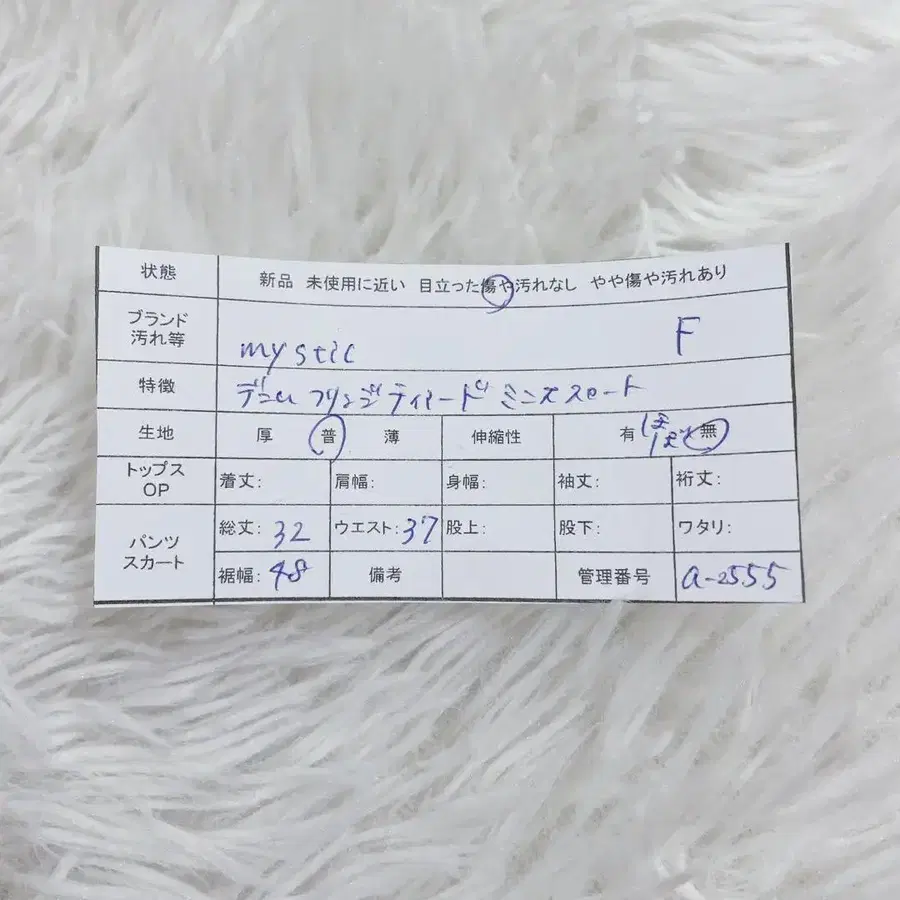 状態 新品 未使用に近い 目立った傷や汚れなし やや傷や汚れあり
ブランド
汚れ等 mystic F
特徴 フリンジティアードミニスカート
生地 厚 普 薄 伸縮性 有 ほぼ 無
トップス
OP 着丈: 肩幅: 身幅: 袖丈: 裄丈:
パンツ
スカート 総丈: 32 ウエスト: 37 股上: 股下: ワタリ:
裾幅: 48 備考 管理番号 a-2555